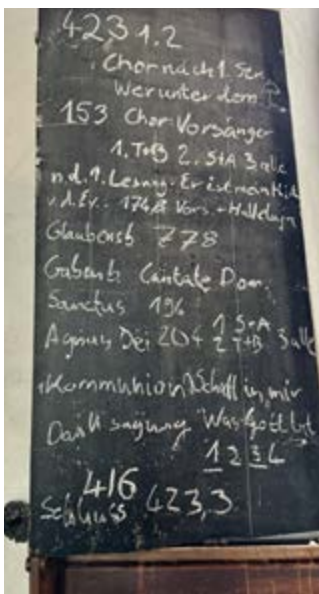 423 1.2
Chor nach 1. Ser.
Wer unter dem
153 Chor Vorsänger
1. T+B 2. S+A 3 alle
n.d. 1. Lesung. Er ist mein Hi
v.d. Ev. 174,8 Vors. + Halleluja
Glaubensb 778
Gabenb Cantate Dom.
Sanctus 196
Agnus Dei 204 1 S+A 3 alle
2 T+B
Kommunion Schaff in mir
Danksagung Was Gott tut
1 2 3 4
416
Schluss 423,3